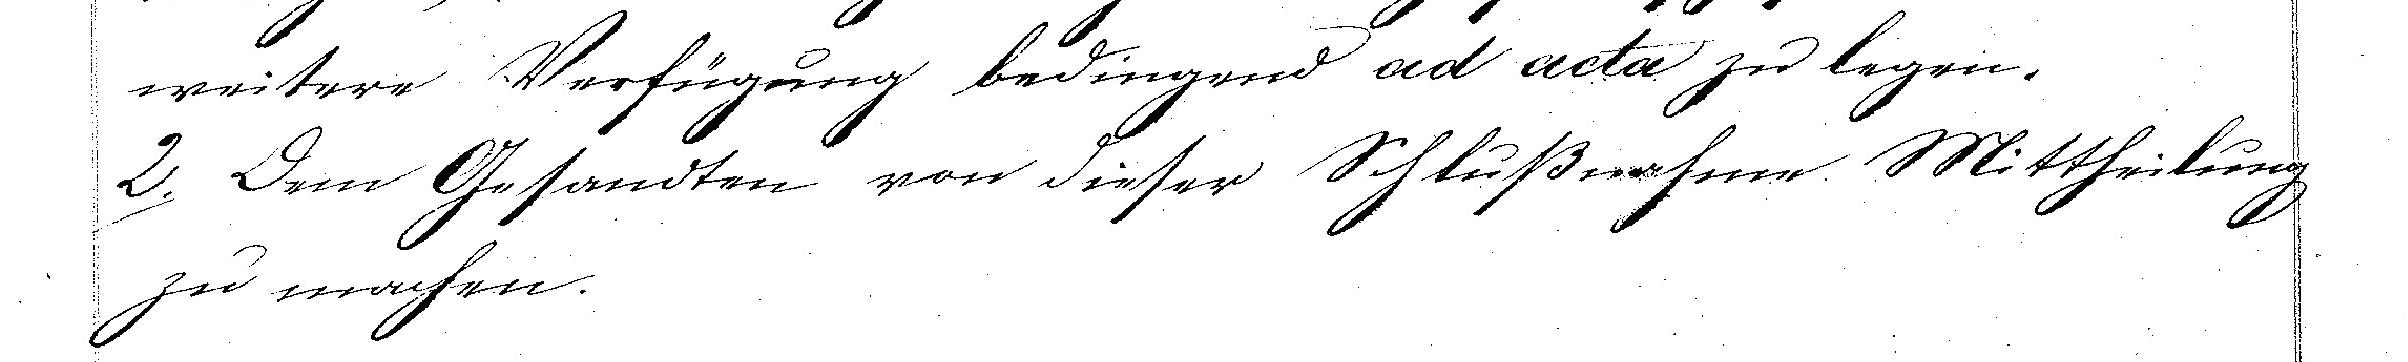 weitere Verfügung bedingend ad acta zu legen.
2. Dem Gesandten von dieser Schlußnahme Mittheilung
zu machen.